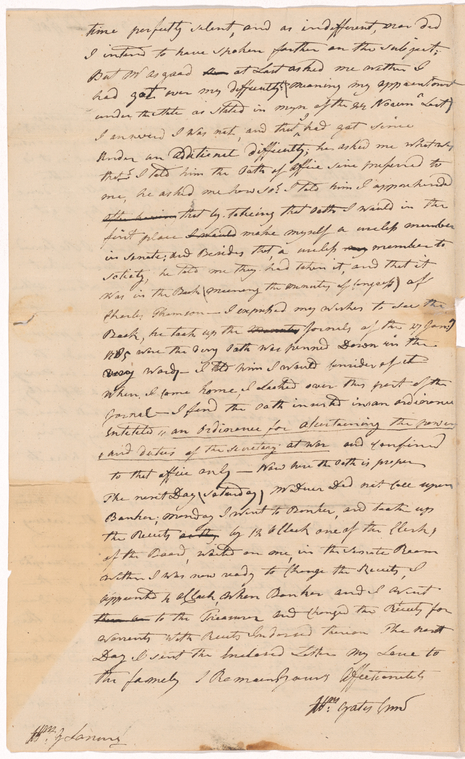 time perfectly silent, and as indifferent, nor did
I intend to have spoken farther on the subject;
But Mr Osgood at Last asked me wither I
had got over my difficulty (meaning my appointment
under the State as Stated in myn of the 24 Novem Last)
I answerd I was not, and that I had got since
under an additional difficulty; he asked me what was
that? I told him the Oath of office sine preferred to
me, he asked me how so? I told him I apprehended
that by taking that Oath I would in the
first place make myself a useless member
in Senate; and Besides that, a useless member to
Society, he told me they had taken it, and that it
Was in the Book (meening the minutes of Congress) of
Charles Thomson — I expressed my Wishes to see the
Book, he took up the Jornels of the 27 Jany
1785 were the very Oath was penned Down in the
Very Words — I told him I would Consider of it
When I come home, I Looked over this part of the
Jornel — I find the Oath inserted in an ordinance
Entitled "an Ordinance for ascertaining the powers
"and duties of the Secretary at War and Confined
to that office only — Now here the Oath is proper
The next Day (Saturday) Mr Duer Did not Call upon
Banker, Monday I went to Banker, and took up
the Receits by 12 o'Clock one of the Clerks
of the Board, waited on me, in the Senate Room
wither I was now ready to Change the Receits, I
appointed o'Clock When Banker and I went
to the Treasurer and Changed the Receits for
Warrants With Receits Endorsed thereon The next
Day I sent the Enclosed Letter my Love to
the family I Remain Yours Affectionately
Pet. W. Yates